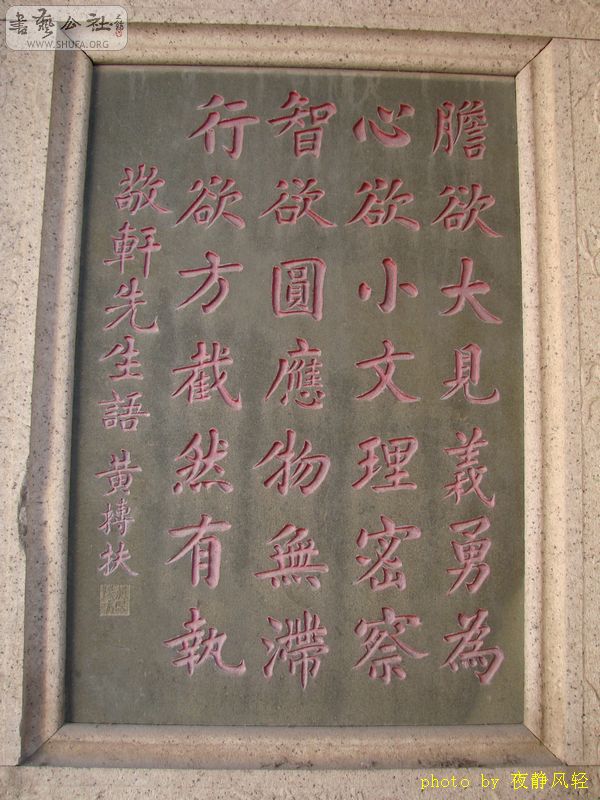 膽欲大見義勇為
心欲小文理密察
智欲圓應物無滯
行欲方截然有執
敬軒先生語 黃摶扶
書藝公社
WWW.SHUFA.ORG
photo by 夜静风轻